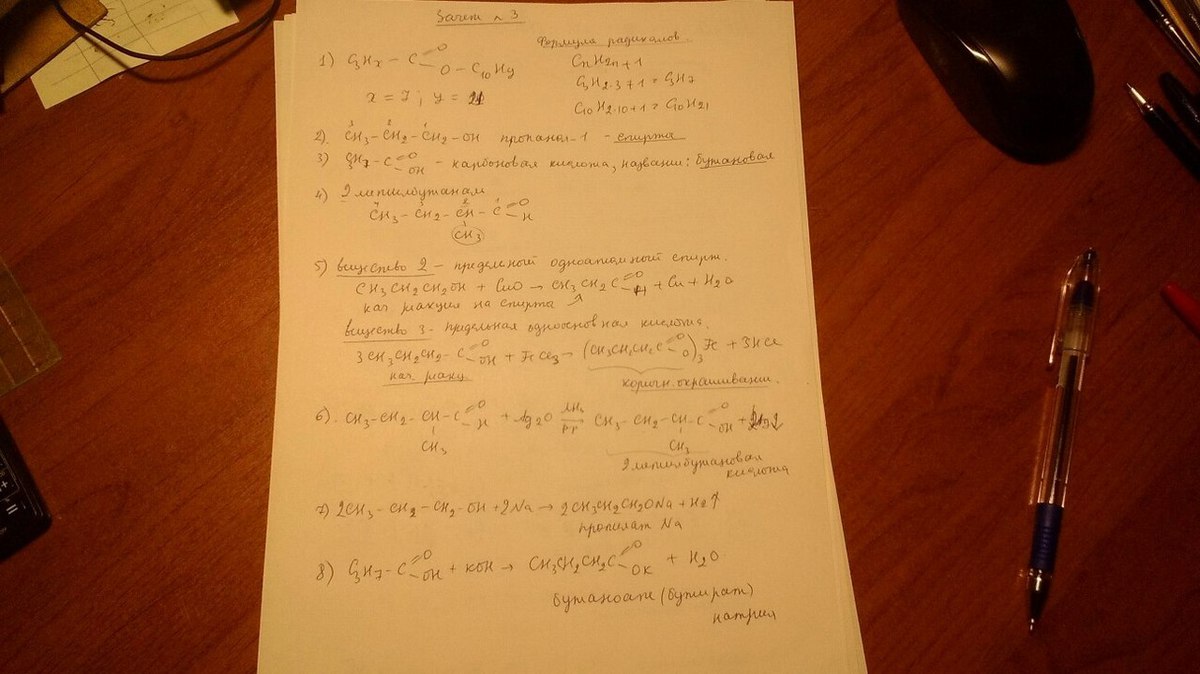 Зачет №3
Формула радикалов.
1) C3Hx – C =O
O – C10Hy
CnH2n+1
C3H2·3+1 = C3H7
x = 7; y = 21
C10H2·10+1 = C10H21
3 2 1
2). CH3 – CH2 – CH2 – OH пропанол-1 – спирты
3) C3H7 – C =O – карбоновая кислота, названии: бутановая
OH
4) 2 метилбутаналь
4 3 2 1
CH3 – CH2 – CH – C =O
H
CH3
5) вещество 2 – предельный одноатомный спирт.
CH3CH2CH2OH + CuO → CH3CH2C =O + Cu + H2O
H
кач. реакция на спирты
вещество 3 – предельная одноосновная кислота.
3CH3CH2CH2 – C =O + FeCl3 → (CH3CH2CH2C =O )3 Fe + 3HCl
OH O
кач. реакц. коричн. окрашивани.
6). CH3 – CH2 – CH – C =O + Ag2O NH3 CH3 – CH2 – CH – C =O +
H рр OH
CH3 CH3
2 метилбутановая
кислота
7) 2CH3 – CH2 – CH2 – OH + 2Na → 2CH3CH2CH2ONa + H2↑
пропилат Na
8) C3H7 – C =O + KOH → CH3CH2CH2C =O + H2O
OH OK
бутаноат (бутират)
натрия